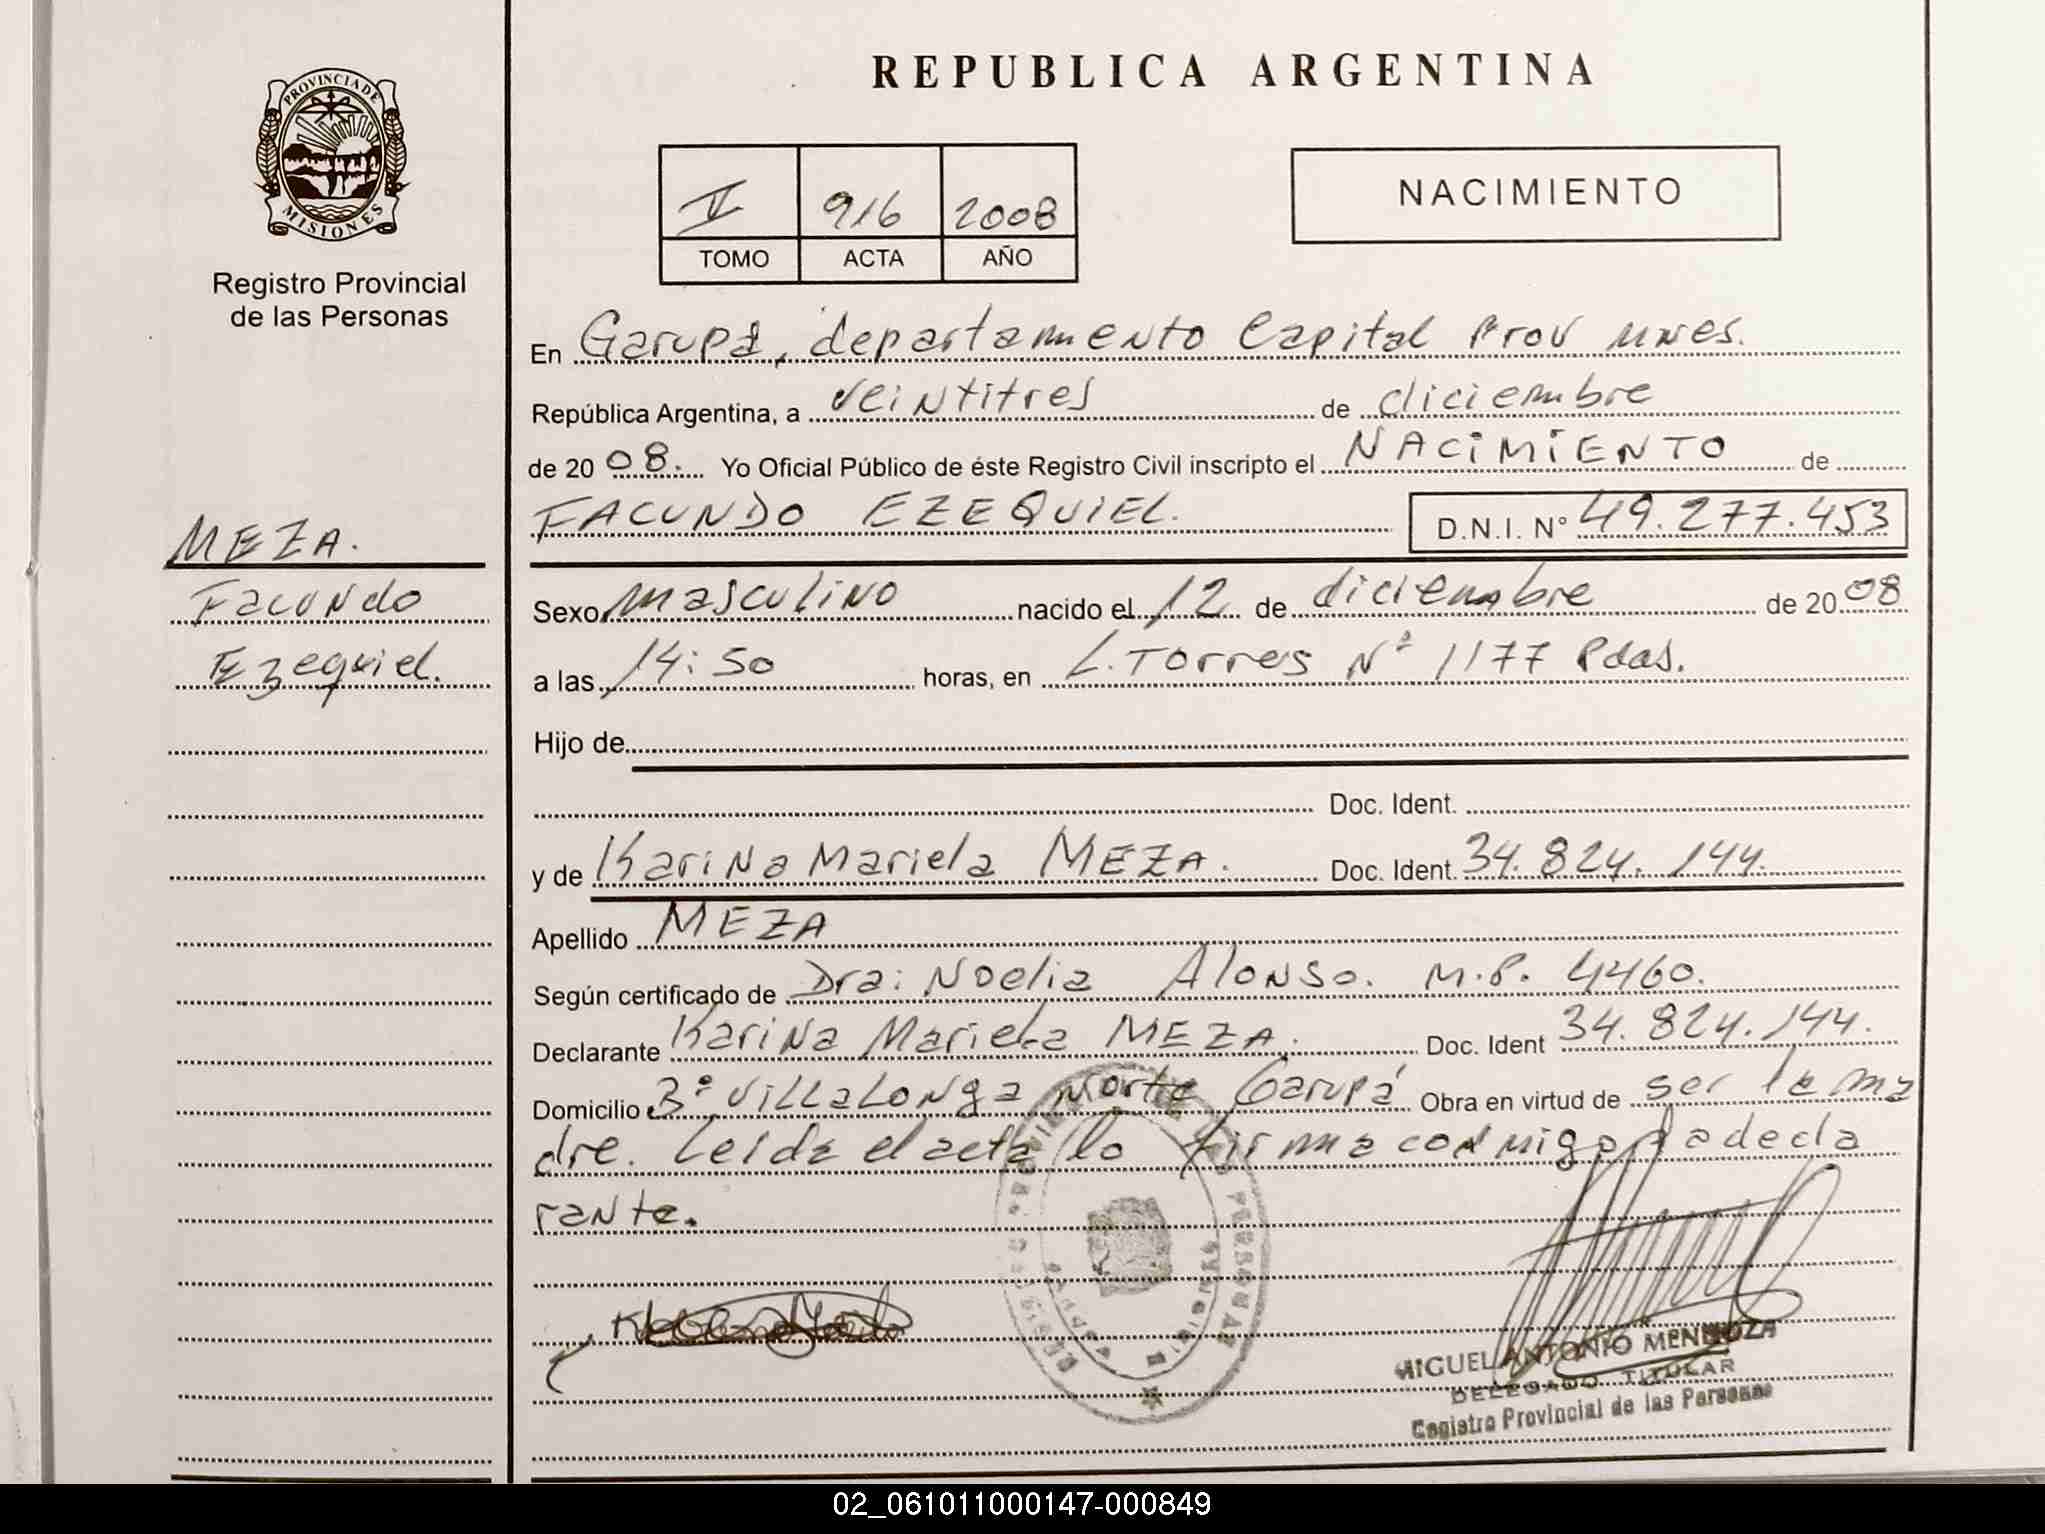 REPUBLICA ARGENTINA
PROVINCIA DE
MISIONES
Registro Provincial
de las Personas
916 2008
TOMO ACTA AÑO
NACIMIENTO
En Garupá, departamento Capital Prov Mnes.
República Argentina, a veintitres de diciembre
de 2008. Yo Oficial Público de éste Registro Civil inscripto el NACIMIENTO de
FACUNDO EZEQUIEL. D.N.I. N° 49.277.453
MEZA.
Facundo
Ezequiel.
Sexo masculino nacido el 12 de diciembre de 2008
a las 14:50 horas, en L. Torres N° 1177 Pdas.
Hijo de
Doc. Ident.
y de Karina Mariela MEZA. Doc. Ident. 34.824.144.
Apellido MEZA
Según certificado de Dra: Noelia Alonso. M.P. 4460.
Declarante Karina Mariela MEZA. Doc. Ident 34.824.144.
Domicilio Bº Villalonga Norte Garupá Obra en virtud de ser la ma
dre. Leida el acta lo firma conmigo la decla
rante.
MIGUEL ANTONIO MENDOZA
DELEGADO TITULAR
Registro Provincial de las Personas
02_061011000147-000849